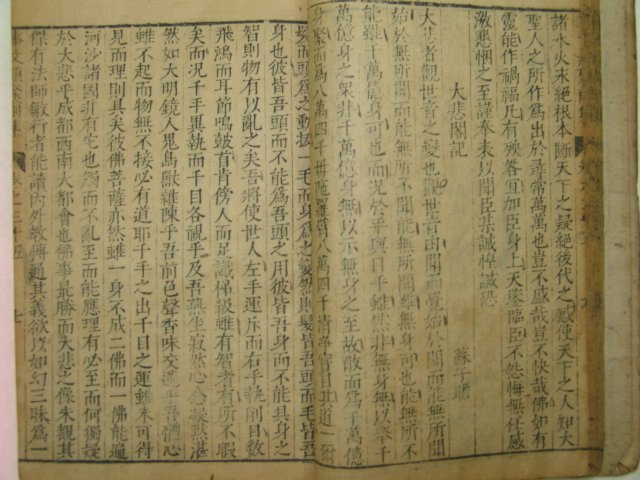 諸水火末絕根本斷天下之疑絕後代之惑使天下之人知大
聖人之所作爲出於尋常萬萬也豈不盛哉豈不快哉佛如有
靈能作禍福凡有殃咎宜加臣身上天鑒臨臣不怨悔無任感
激悲懇之至謹奉表以聞臣某誠惶誠恐
大悲閣記
蘇子瞻
大悲者觀世音之變也觀世音由聞而覺始於聞而能無所聞
始於無所聞而能無所不聞能無所聞雖無身可也能無所不
能雖千萬億身可也而况於手與目乎雖然非無身無以舉千
萬億身之衆非千萬億身無以示無身之至故散而爲千萬億
身聚而爲八萬四千母陁羅臂八萬四千清淨寶目其道一爾
髮而頭爲之動拔一毛而身爲之變然則髮皆吾頭而毛皆吾
身也彼皆吾頭而不能爲吾頭之用彼皆吾身而不能具身之
智則物有以亂之矣吾將使世人左手運斤而右手執削目數
飛鴻而耳節鳴鼓首肯傍人而足識梯級雖有智者有所不暇
矣而况千手異執而千目各視乎及吾燕坐寂然心念凝黙湛
然如大明鏡人鬼鳥獸雜陳乎吾前色聲香味交遘乎吾體心
雖不起而物無不接必有道耶千手之出千目之運雖未可得
見而理則具矣彼佛菩薩亦然雖一身不成二佛而一佛能遍
河沙諸國非有宅也觸而不亂至而能應理有必至而何獨疑
於大悲乎成都西南大都會也佛事最勝而大悲之像未覩其
傑有法師敏行者能讀內外教博通其義欲以如幻三昧爲一
卷之三十五
七